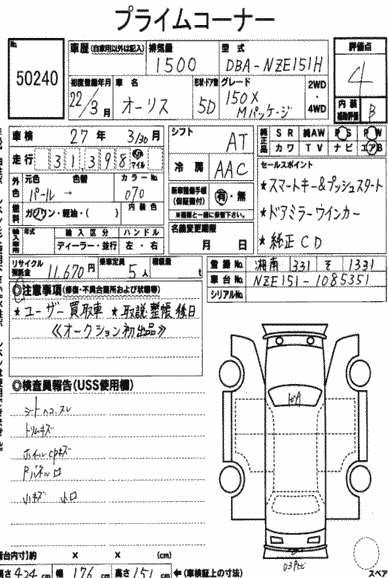 プライムコーナー
No.
50240
車歴 (自家用以外は記入)
排気量
1500
型式
DBA-NZE151H
評価点
4
初度登録年月
22/3月
車名
オーリス
形状・ドア数
5D
グレード
150X
Mパッケージ
2WD
・
4WD
内装
補助評価
B
車検
27年 3/30月
シフト
AT
純正品
SR 純AW PS PW
カワ TV ナビ エアB
走行
31,398
km
マイル
冷房
AAC
セールスポイント
外色
元色 色替 カラーNo.
パール → 070
★スマートキー&プッシュスタート
燃料
ガソリン・軽油・( )
内装色
有・無
★ドアミラーウインカー
輸入車
輸入区分 ハンドル
ディーラー・並行 左・右
名義変更期限
月 日
★純正CD
リサイクル
預託金
11,670円
乗車定員
5人
積載量
t
登録No.
湘南 331 そ 1331
車台No.
NZE151-1085351
シリアルNo.
◎注意事項(修復・不具合箇所および状態等)
★ユーザー買取車 ★取説整帳後日
《オークション初出品》
◎検査員報告(USS使用欄)
シートヘコ、スレ
トリムキズ
ホイールCPキズ
小キズ 小凹
スペア
荷台内寸)約 × × (cm)
長さ 424 cm 幅 176 cm 高さ 151 cm ←(車検証上の寸法)